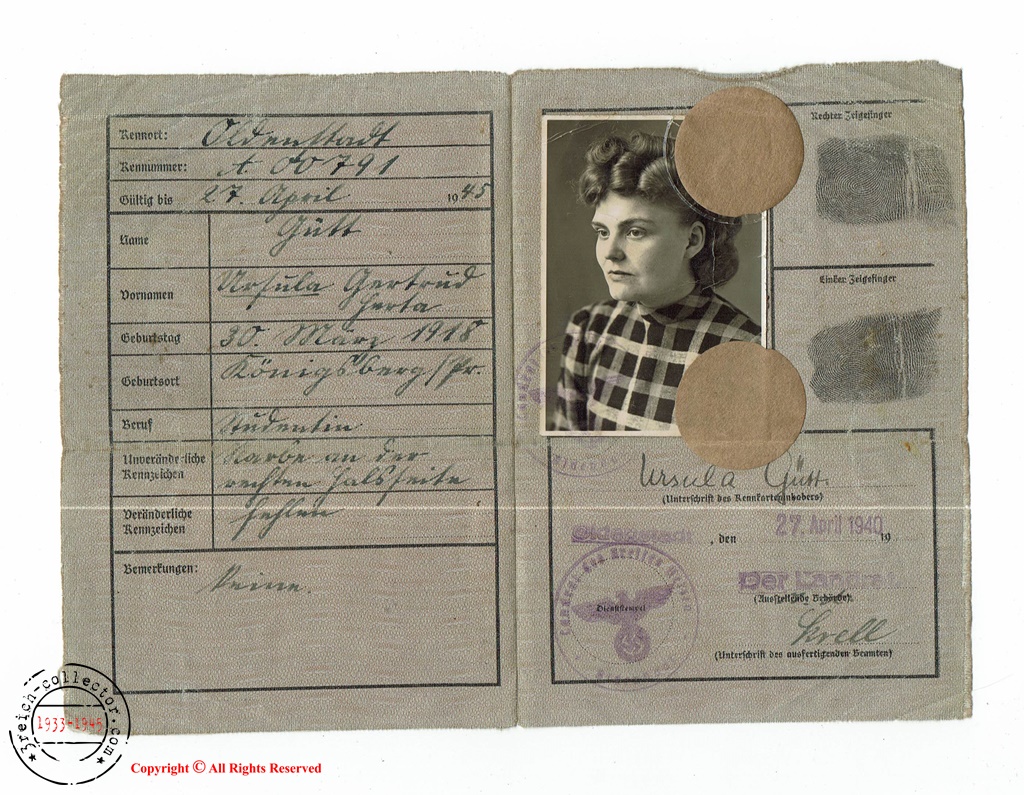 Kennort: Oldenstadt
Kennummer: A 00791
Gültig bis 27. April 1945
Name Gütt
Vornamen Ursula Gertrud
Herta
Geburtstag 30. März 1918
Geburtsort Königsberg/Pr.
Beruf Studentin
Unveränderliche Kennzeichen Narbe an der
rechten Halsseite
Veränderliche Kennzeichen fehlen
Bemerkungen: Keine.
Rechter Zeigefinger
Linker Zeigefinger
Ursula Gütt
(Unterschrift des Kennkarteninhabers)
Oldenstadt, den 27. April 1940 19
Der Landrat
(Ausstellende Behörde)
Landrat des Kreises
Dienststempel
Krell
(Unterschrift des ausfertigenden Beamten)
3reich-collector.com
1933-1945
Copyright © All Rights Reserved